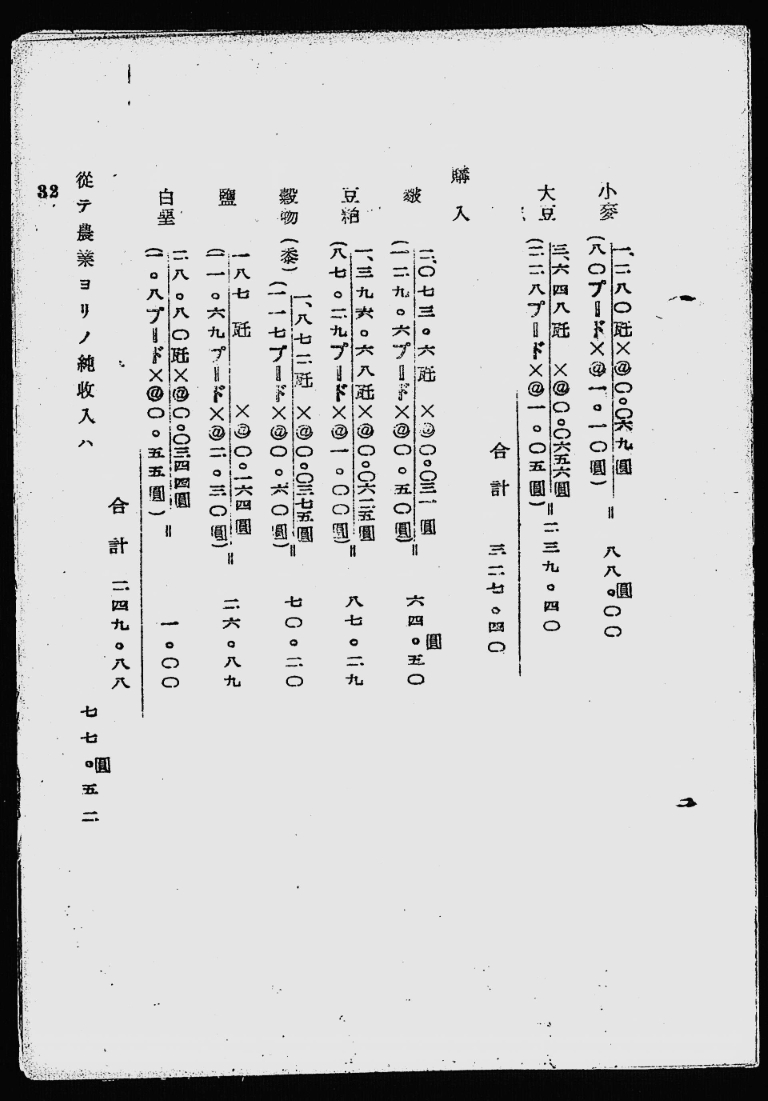 小麥
一、二八〇瓩×@〇。〇六九圓
(八〇プード×@一。一〇圓)
＝
八八。〇〇
圓
大豆
三、六四八瓩×@〇。〇六五六圓
(二二八プード×@一。〇五圓)
＝二三九。四〇
合計 三二七。四〇
購入
二、〇七三。六瓩×@〇。〇三一圓
(一二九。六プード×@〇。五〇圓)
＝
六四。五〇
圓
豆粕
一、三九六。六八瓩×@〇。〇六二五圓
(八七。二九プード×@一。〇〇圓)
＝
八七。二九
穀物(黍)
一、八七二瓩×@〇。〇三七五圓
(一一七プード×@〇。六〇圓)
＝
七〇。二〇
鹽
一八七瓩×@〇。一六四圓
(一一。六九プード×@二。三〇圓)
＝
二六。八九
白堊
二八。八〇瓩×@〇。〇三四四圓
(一。八プード×@〇。五五圓)
＝
一。〇〇
合計 二四九。八八
從テ農業ヨリノ純收入ハ 七七。五二
圓
32